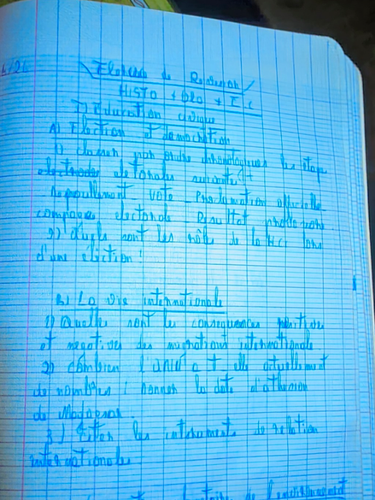 de
Histo + Géo + E C
I) Education civique
A) Election et democratie
1) Classer par ordre chronologiques les étape
electorales suivante :
Depouillement - Vote - Proclamation officielle
campagne electorale - Resultat provisoire
2) sont les rôle de la HCC lors
d'une élection !
B) La vie internationale
1) Quelles sont les consequences positives
et negatives des migrations internationale
2) Combien l'ONU a t elle actuellement
de membres ; donner la date d'adhesion
de Madagascar.
3) Citer les instruments de relation
internationales
de l'environnement